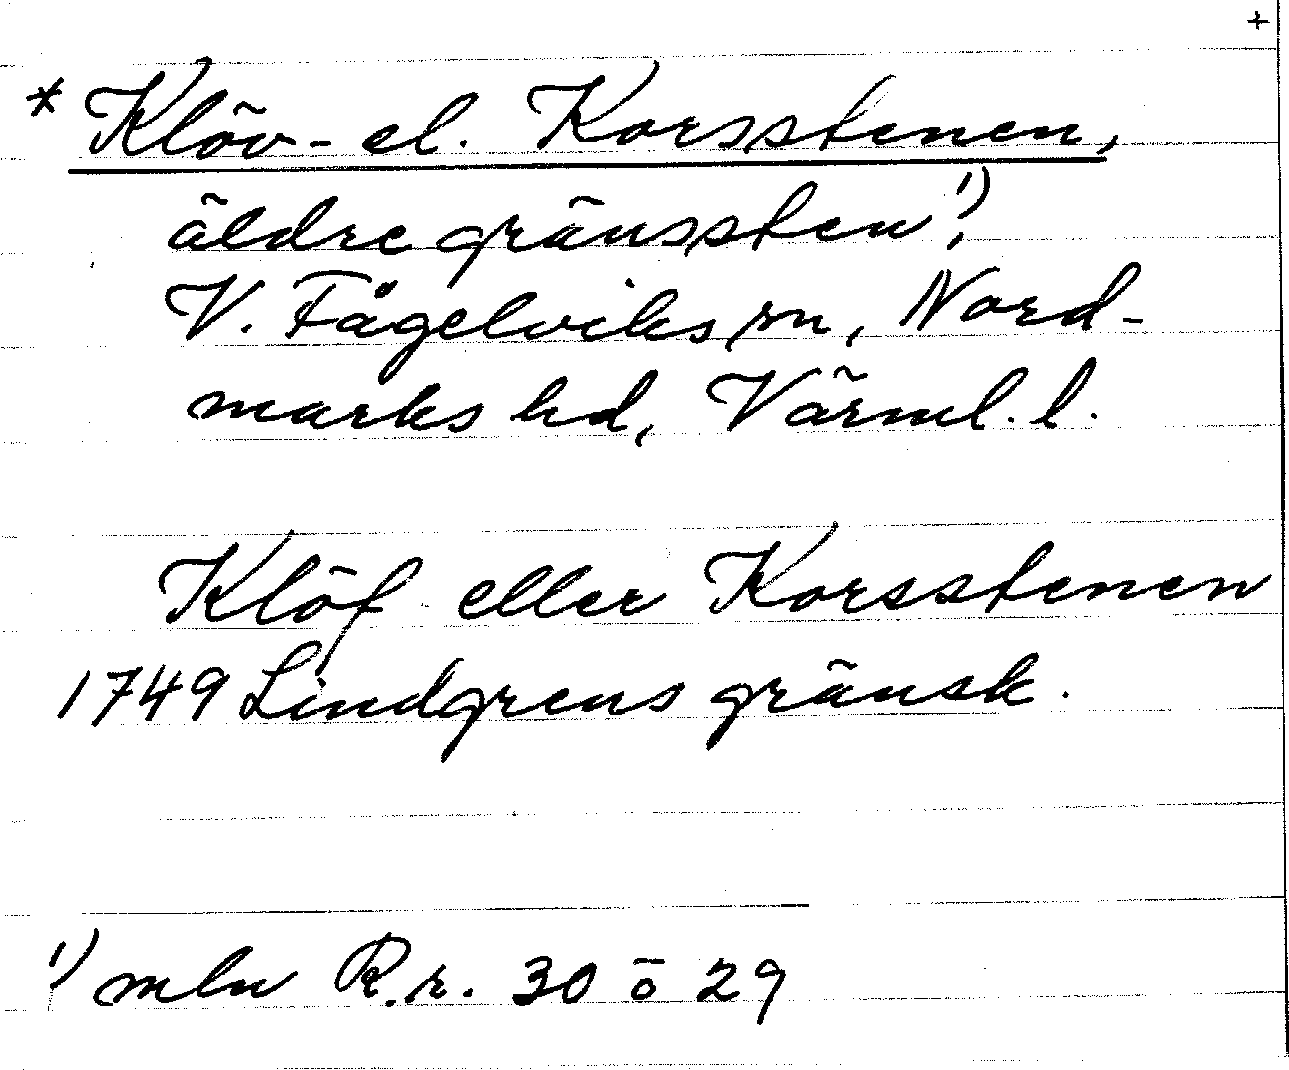 +
* Klöv- el. Korsstenen,
äldre gränssten ¹),
V. Fågelviks sn, Nord-
marks hd, Värml. l.
Klöf eller Korsstenen
1749 Lindgrens gränsk.
¹) mln R.r. 30 o 29